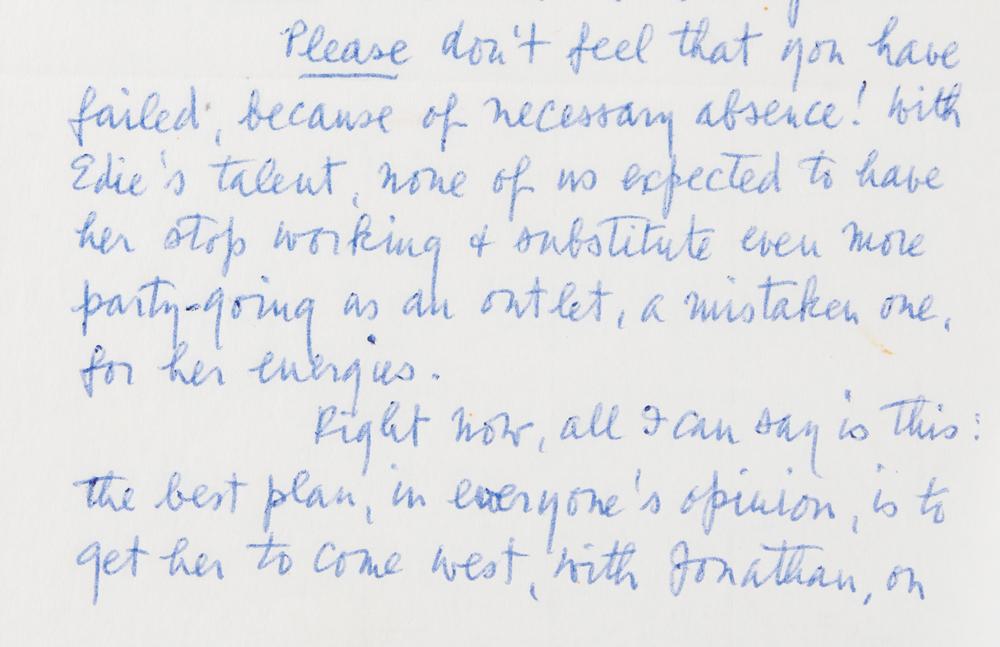 Please don't feel that you have
failed, because of necessary absence! With
Edie's talent, none of us expected to have
her stop working & substitute even more
party-going as an outlet, a mistaken one,
for her energies.
Right now, all I can say is this:
the best plan, in everyone's opinion, is to
get her to come west, with Jonathan, on